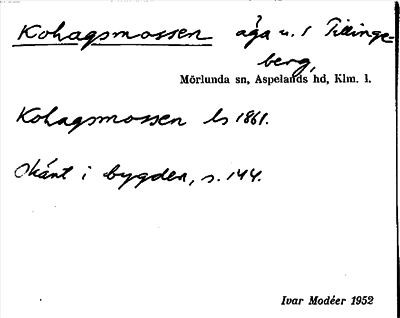 Kohagsmossen äga u. 1 Tillinge-
berg,
Mörlunda sn, Aspelands hd, Klm. l.
Kohagsmossen ls 1861.
Okänt i bygden, s. 144.
Ivar Modéer 1952